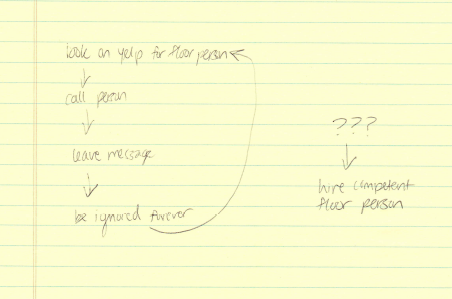 look on yelp for floor person
call person
leave message
be ignored forever
???
hire competent
floor person